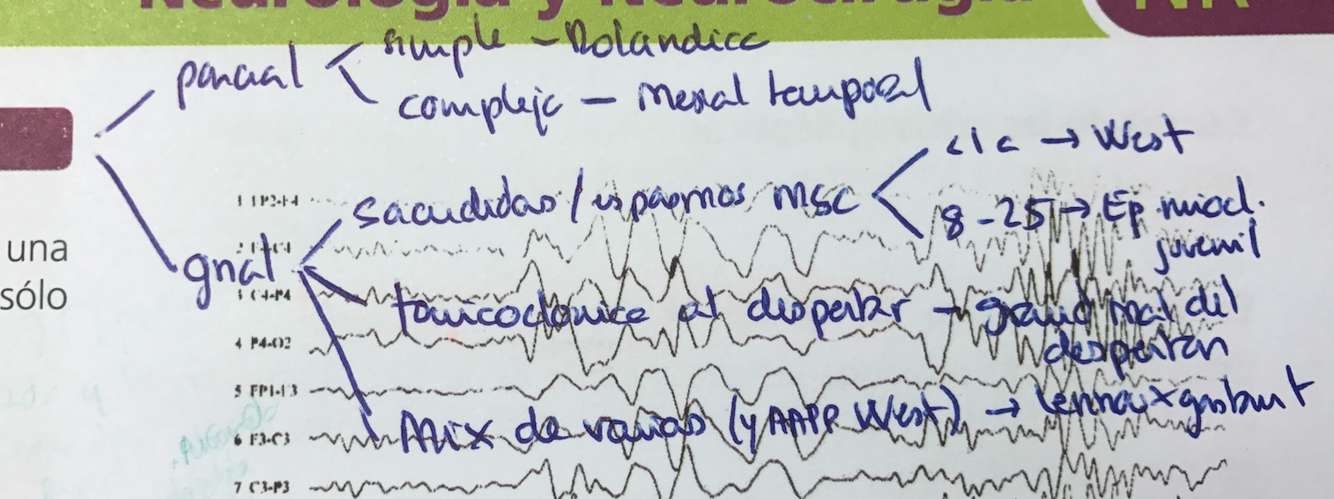 Neurología y Neurocirugía NR
parcial simple - Rolandica
compleja - Mesial temporal
una
sólo
gnal
sacudidas/espasmos msc <1a → West
8-25 → Ep miocl. juvenil
tonicoclonica al despertar - grand mal del despertar
Mix de varias (y AAPP West) → Lennox gastaut
1 FP2-F4
3 C4-P4
4 P4-O2
5 FP1-F3
6 F3-C3
7 C3-P3